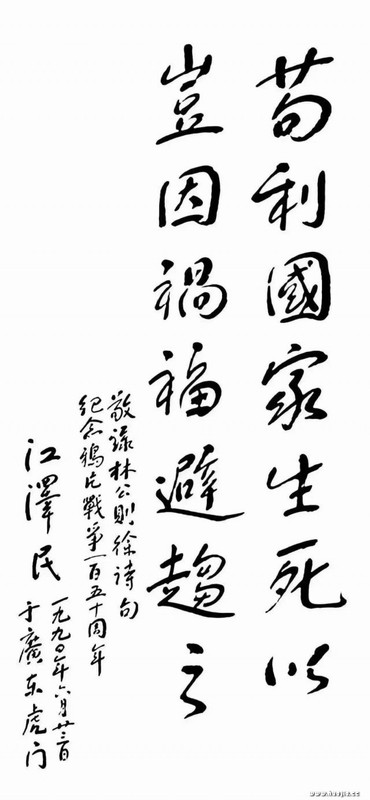 苟利國家生死以
豈因禍福避趨之
敬録林公則徐詩句
紀念鴉片戰爭一百五十周年
江澤民
一九九〇年六月廿三日
于廣东虎门